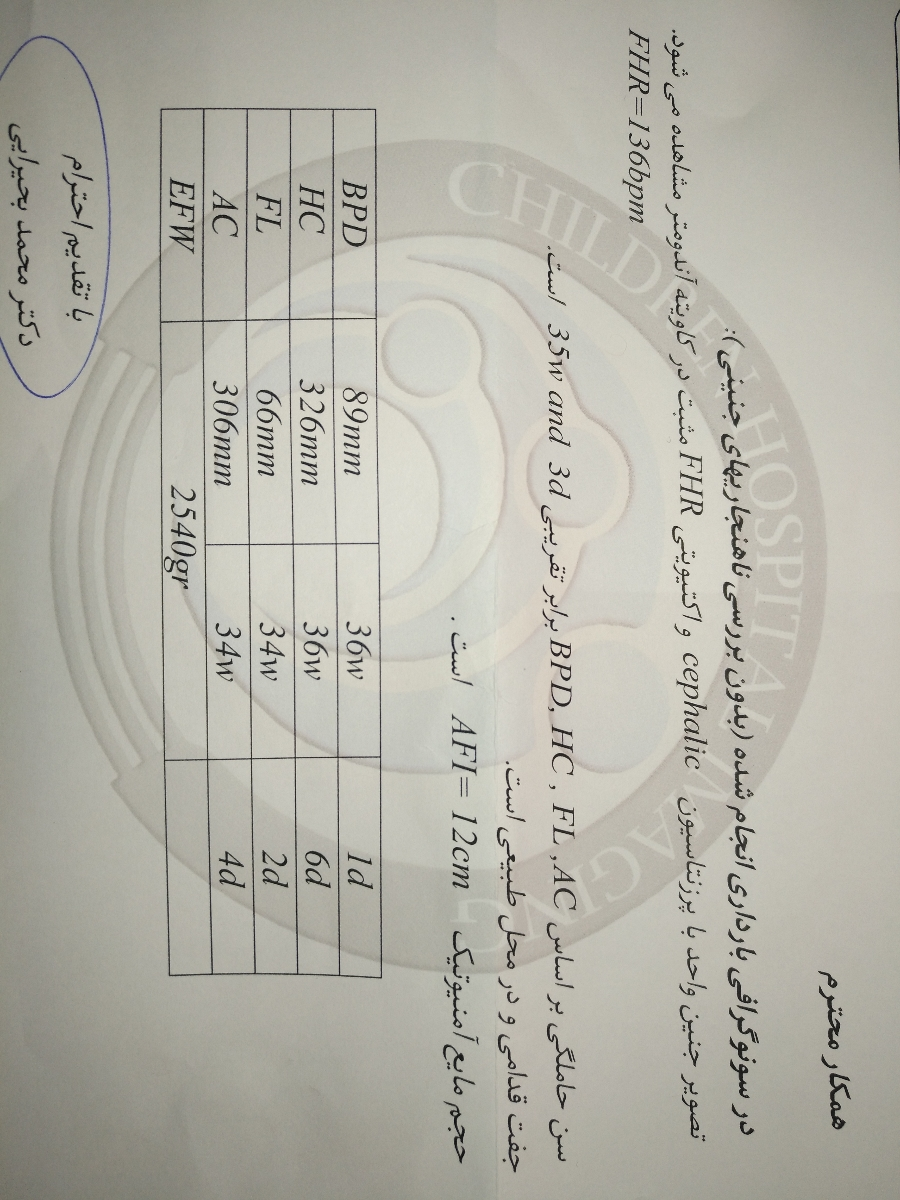 همکار محترم
در سونوگرافی بارداری انجام شده (بدون بررسی ناهنجاریهای جنینی):
تصویر جنین واحد با پرزنتاسیون cephalic و اکتیویتی FHR مثبت در کاویته آندومتر مشاهده می شود.
FHR=136bpm
سن حاملگی بر اساس BPD, HC , FL ,AC برابر تقریبی 35w and 3d است.
جفت قدامی و در محل طبیعی است.
حجم مایع آمنیوتیک AFI= 12cm است .
BPD 89mm 36w 1d
HC 326mm 36w 6d
FL 66mm 34w 2d
AC 306mm 34w 4d
EFW 2540gr
با تقدیم احترام
دکتر محمد بحیرایی
CHILDREN HOSPITAL IMAGING